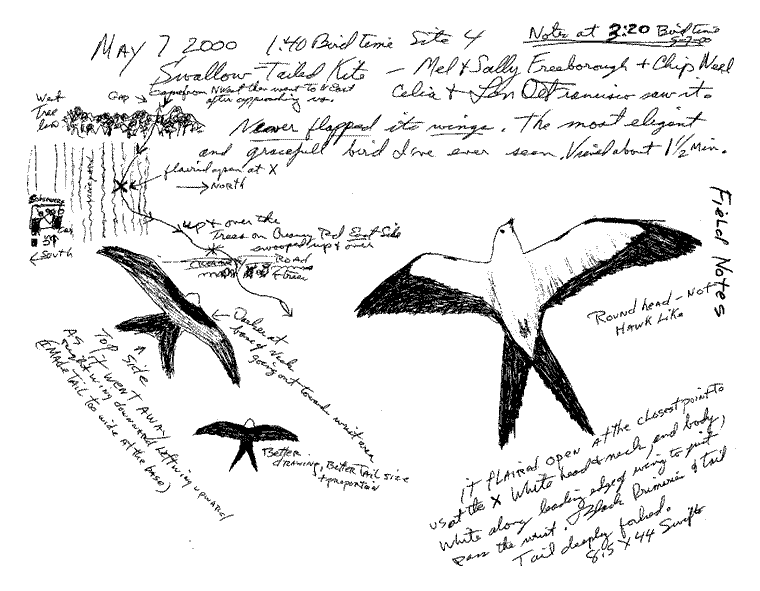 May 7 2000 1:40 Bird time Site 4 Notes at 3:20 Bird time
5-7-00
Swallow-Tailed Kite – Mel & Sally Freeborough + Chip Neel
Celia & Len DeFrancisco saw it.
Never flapped its wings. The most elegant
and gracefull bird I've ever seen. Viewed about 1 1/2 Min.
West
Tree
line
Gap
Came from NWest then went to East
after approaching us.
flaired open at X
→ North
← South
up & over the
Trees on Creamy Rd East Side
swooped up & over
Creamery Road
Field Notes
Round head – Not
Hawk Like
Darker at
base of Neck
going out toward wrist area
A
Top side
As it went away
right wing downward left wing upward
(Made Tail too wide at the base)
Better
drawing, Better Tail size
& proportion
it flaired open at the closest point to
us at the X White head & neck, and body,
White along leading edge of wing to just
pass the wrist. Black Primeries & tail
Tail deeply forked.
8.5 X 44 Swifts